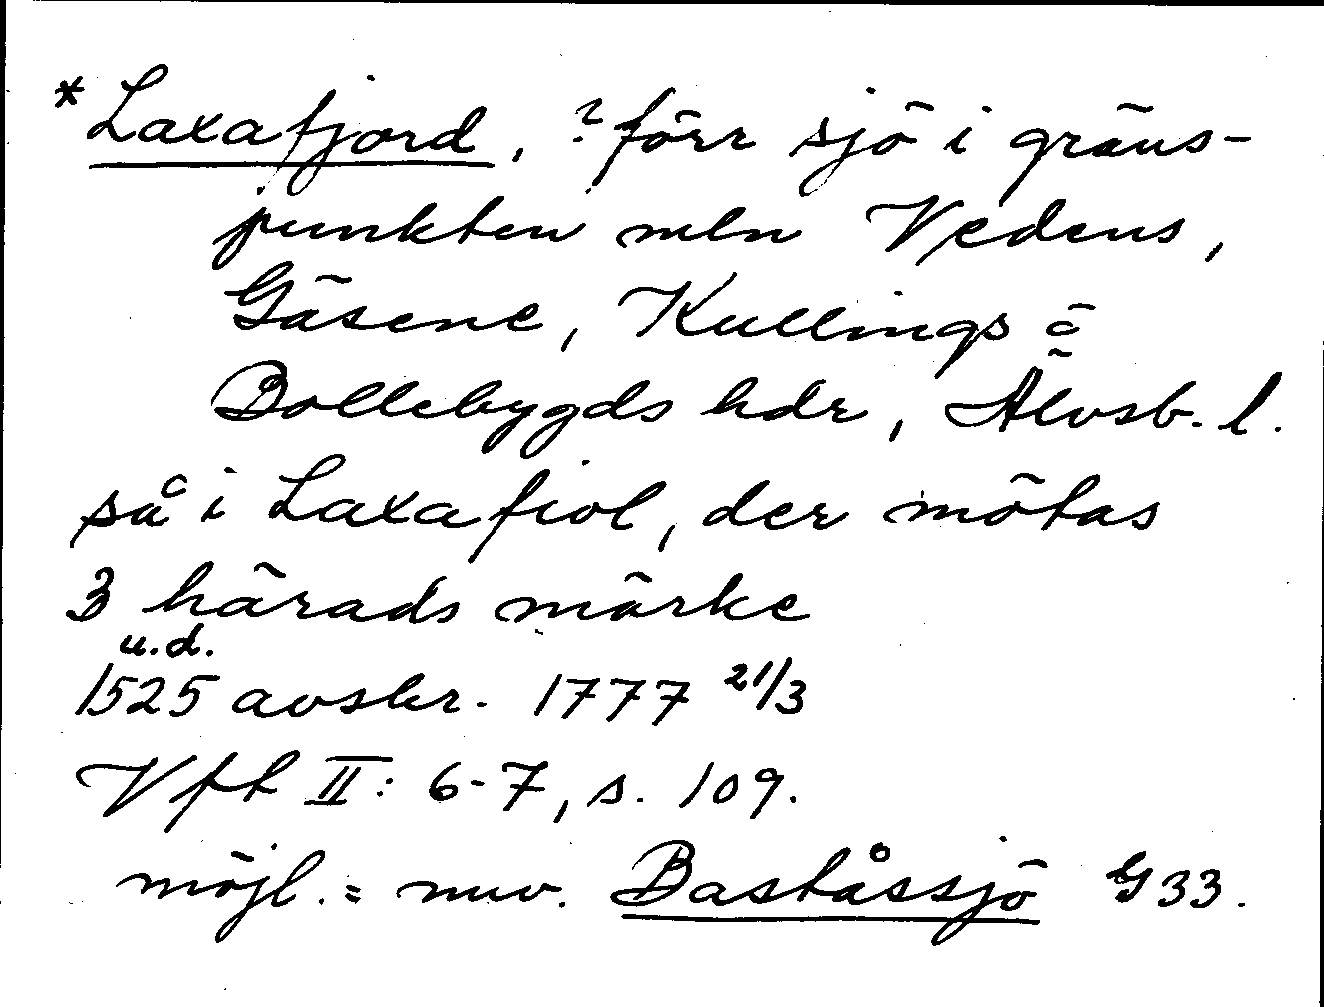 *Laxafjord, ? förr sjö i gräns-
punkten mln Vedens,
Gäsene, Kullings o
Bollebygds hdr, Älvsb. l.
så i Laxafiol, der mötas
3 härads märke
u.d.
1525 avskr. 1777 21/3
Vft II: 6-7, s. 109.
möjl. = nuv. Baståssjö G 33.